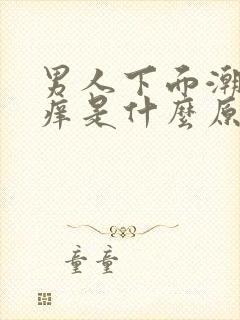 男人下而潮
痒是什麼原
童童